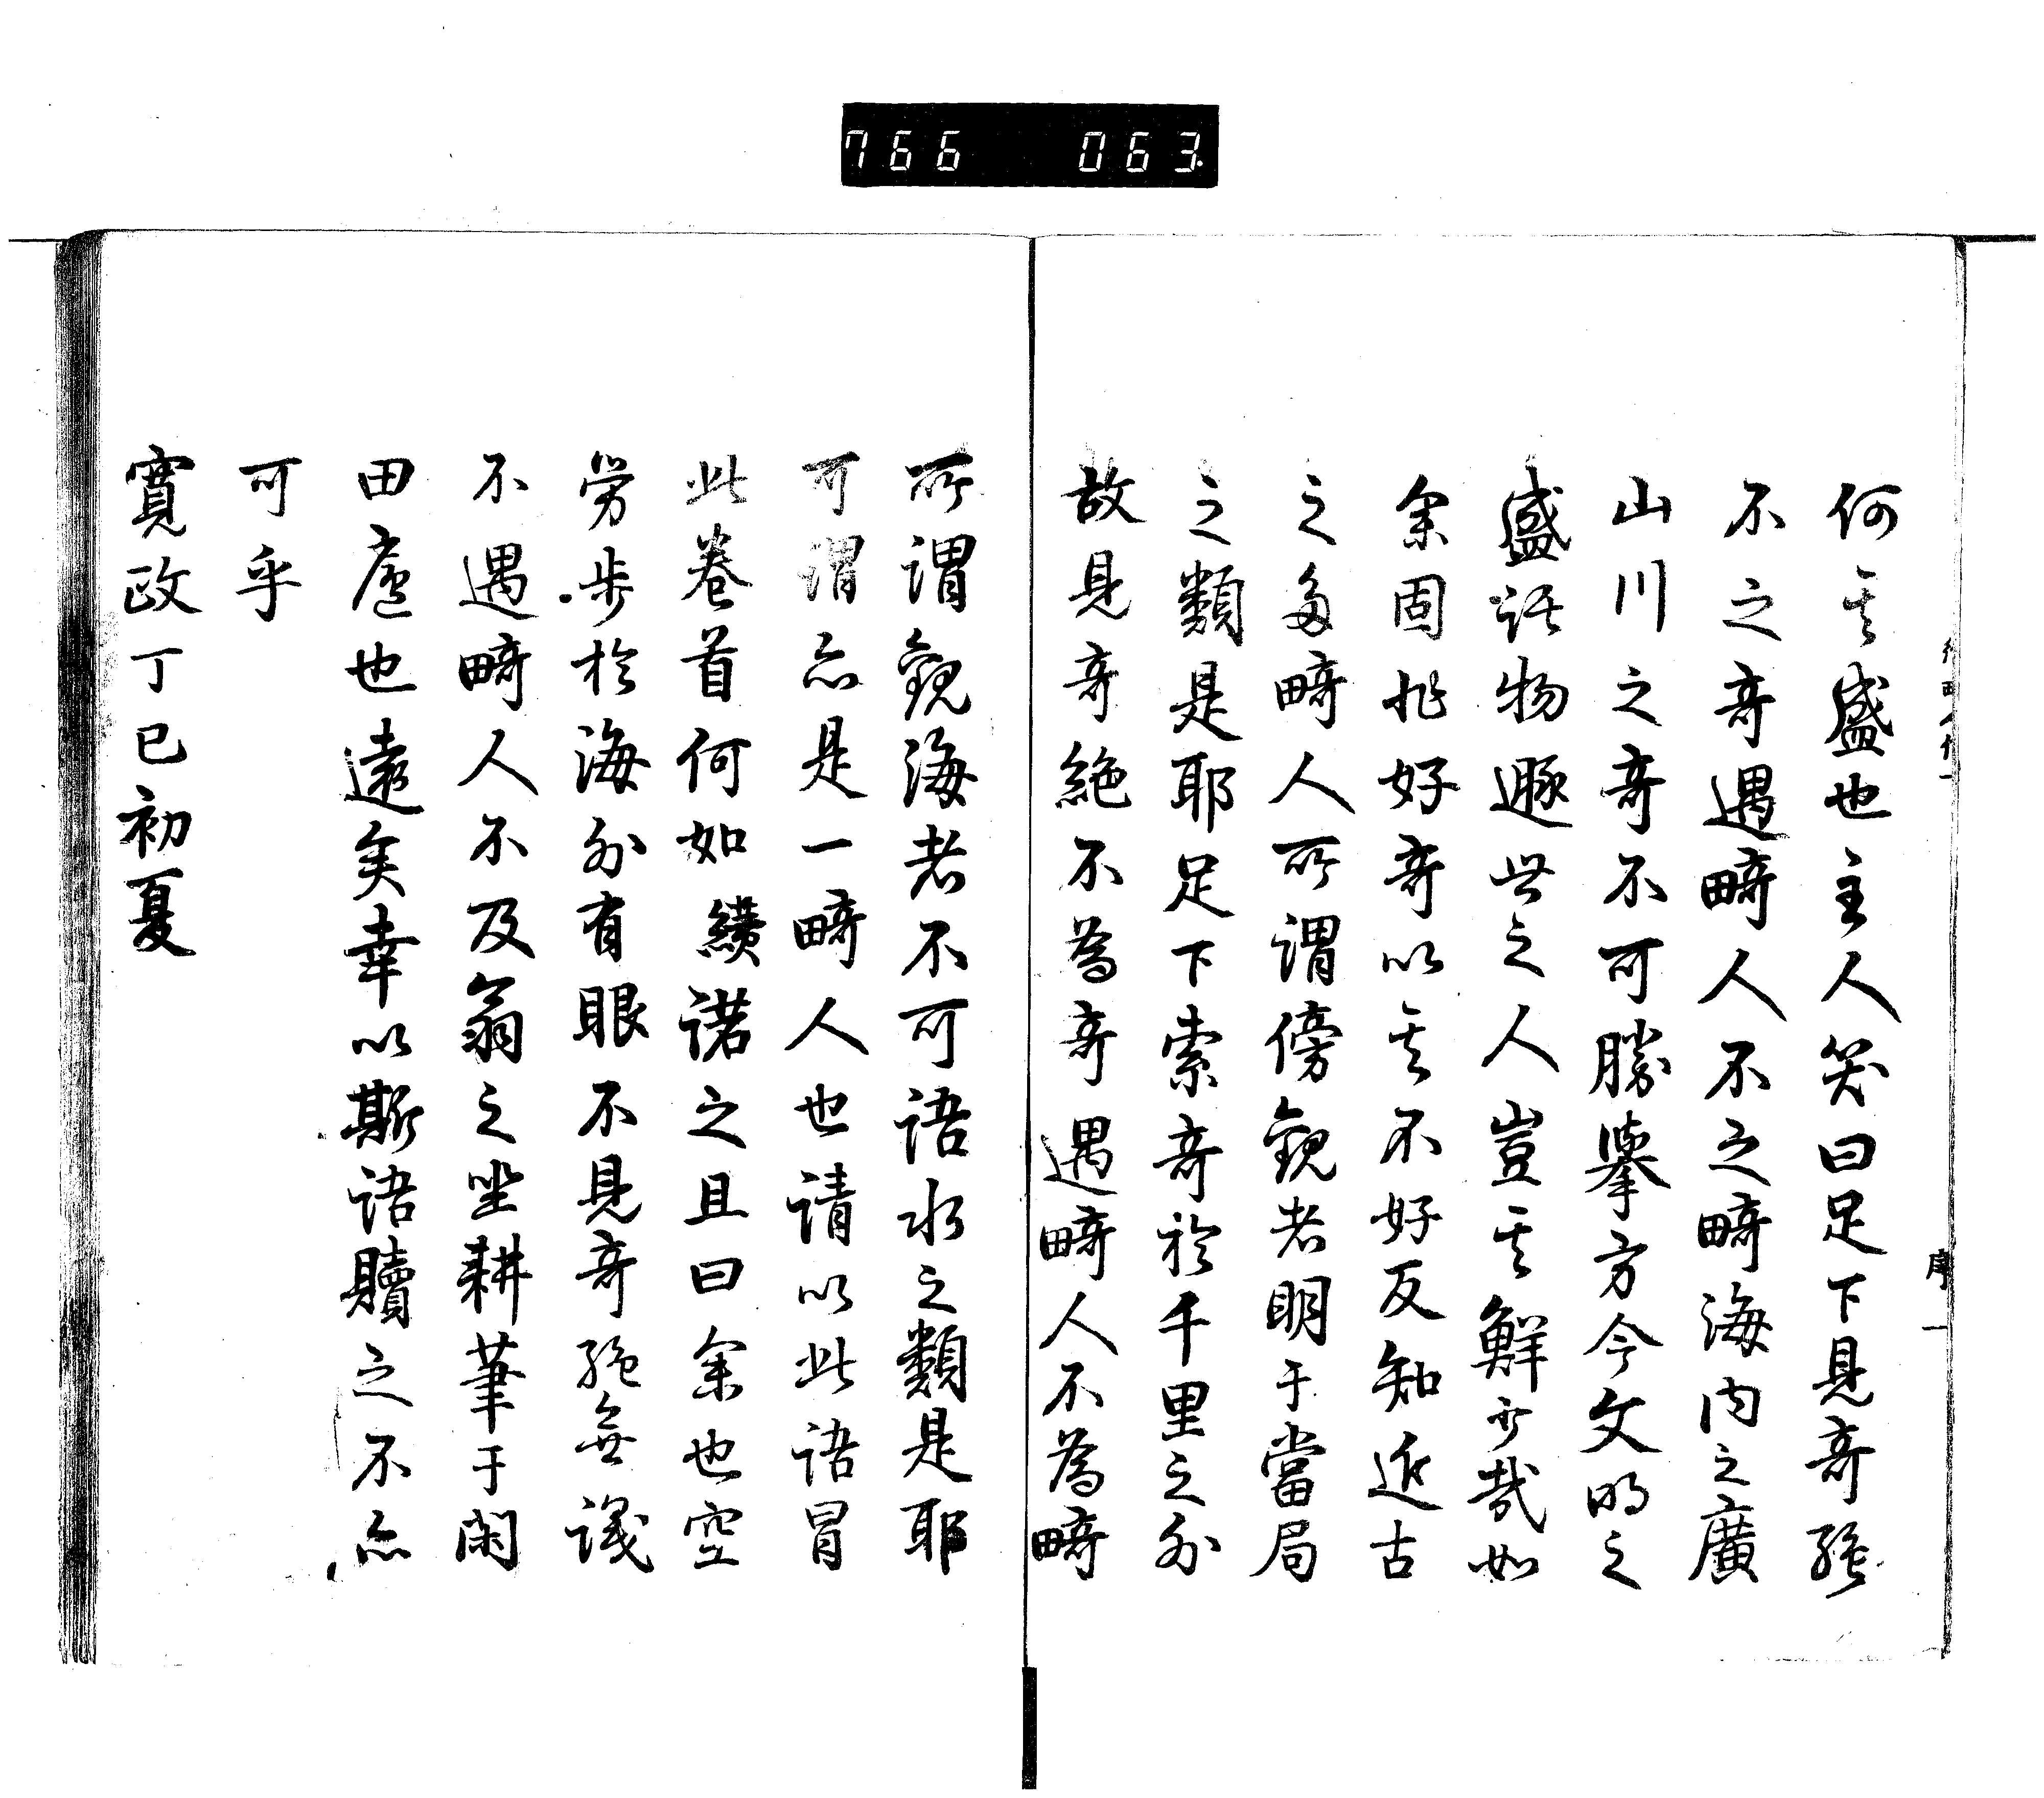 766 063
何其盛也主人笑曰足下見奇絶
不之奇遇畸人不之畸海内之廣
山川之奇不可勝挙方今文明之
盛語物遯世之人豈其鮮少哉如
余固非好奇以其不好反知近古
之多畸人所謂傍観者明于當局
之類是耶足下索奇於千里之外
故見奇絶不為奇遇畸人不為畸
序一
所謂観海者不可語水之類是耶
可謂亦是一畸人也請以此語冒
此巻首何如纉諾之且曰余也空
労歩於海外有眼不見奇絶無識
不遇畸人不及翁之坐耕筆于閑
田廬也遠矣幸以斯語贖之不亦
可乎
寛政丁巳初夏